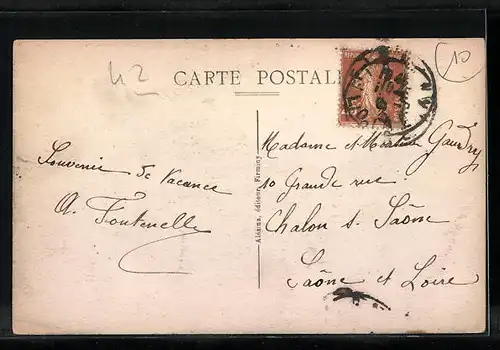 42
10
CARTE POSTALE
Souvenir de Vacances
A. Fontenelle
Madame et Monsieur Gaudry
10 Grande rue
Chalon s. Saône
Saône et Loire
Aldanna, éditeur, Firminy